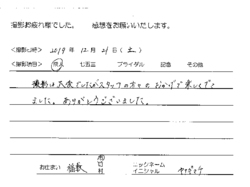 撮影お疲れ様でした。 感想をお願いいたします。
<撮影日時> 2019年 12月 21日 (土)
<撮影内容> 成人 七五三 ブライダル 記念 その他
撮影は大変でしたがスタッフの方々の おかげで楽しくでき
ました。ありがとうございました。
お住まい 市 町 村 ニックネーム
イニシャル